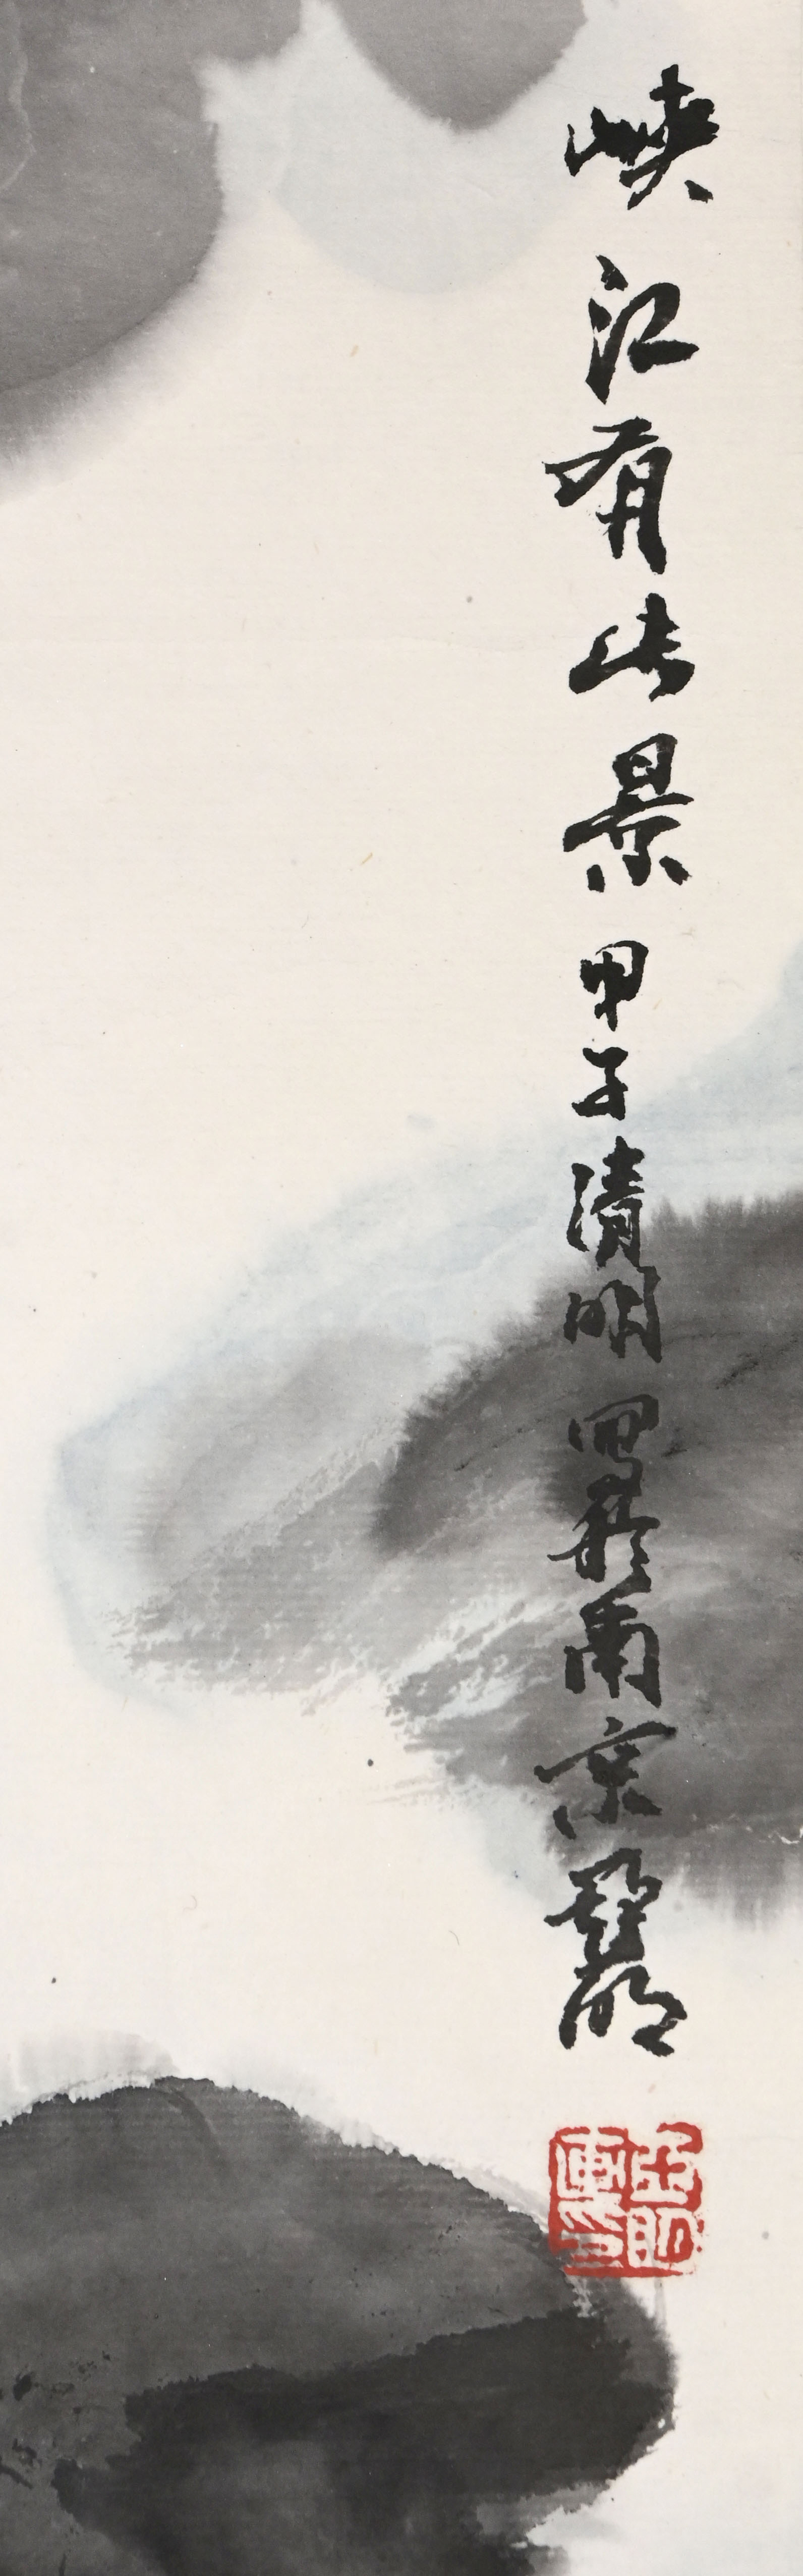 峡江有此景 甲子清明 寫於南京